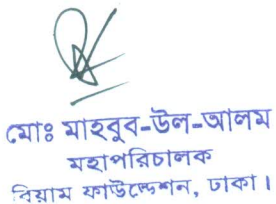 মোঃ মাহবুব-উল-আলম
মহাপরিচালক
বিয়াম ফাউন্ডেশন, ঢাকা।